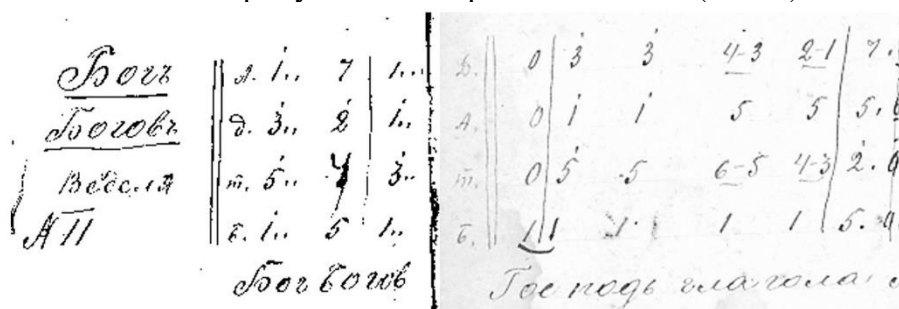 Богъ
Боговъ
Веделя
А П
д. 1.. 7 1..
а. 3.. 2 1..
т. 5.. 4 3..
Б. 1.. 5 1..
Бог Богов
Д. 0 3 3 4-3 2-1 7.
А. 0 1 1 5 5 5.
т. 0 5 5 6-5 4-3 2.
Б. 1 1 1 1 1 5.
Гос подь глагола